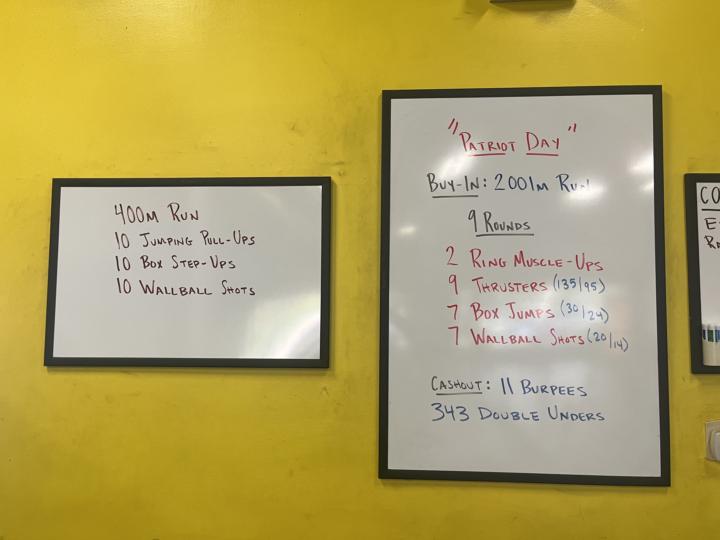 400m Run
10 Jumping Pull-Ups
10 Box Step-Ups
10 Wallball Shots
"Patriot Day"
Buy-In: 2001m Run
9 Rounds
2 Ring Muscle-Ups
9 Thrusters (135/95)
7 Box Jumps (30/24)
7 Wallball Shots (20/14)
Cashout: 11 Burpees
343 Double Unders